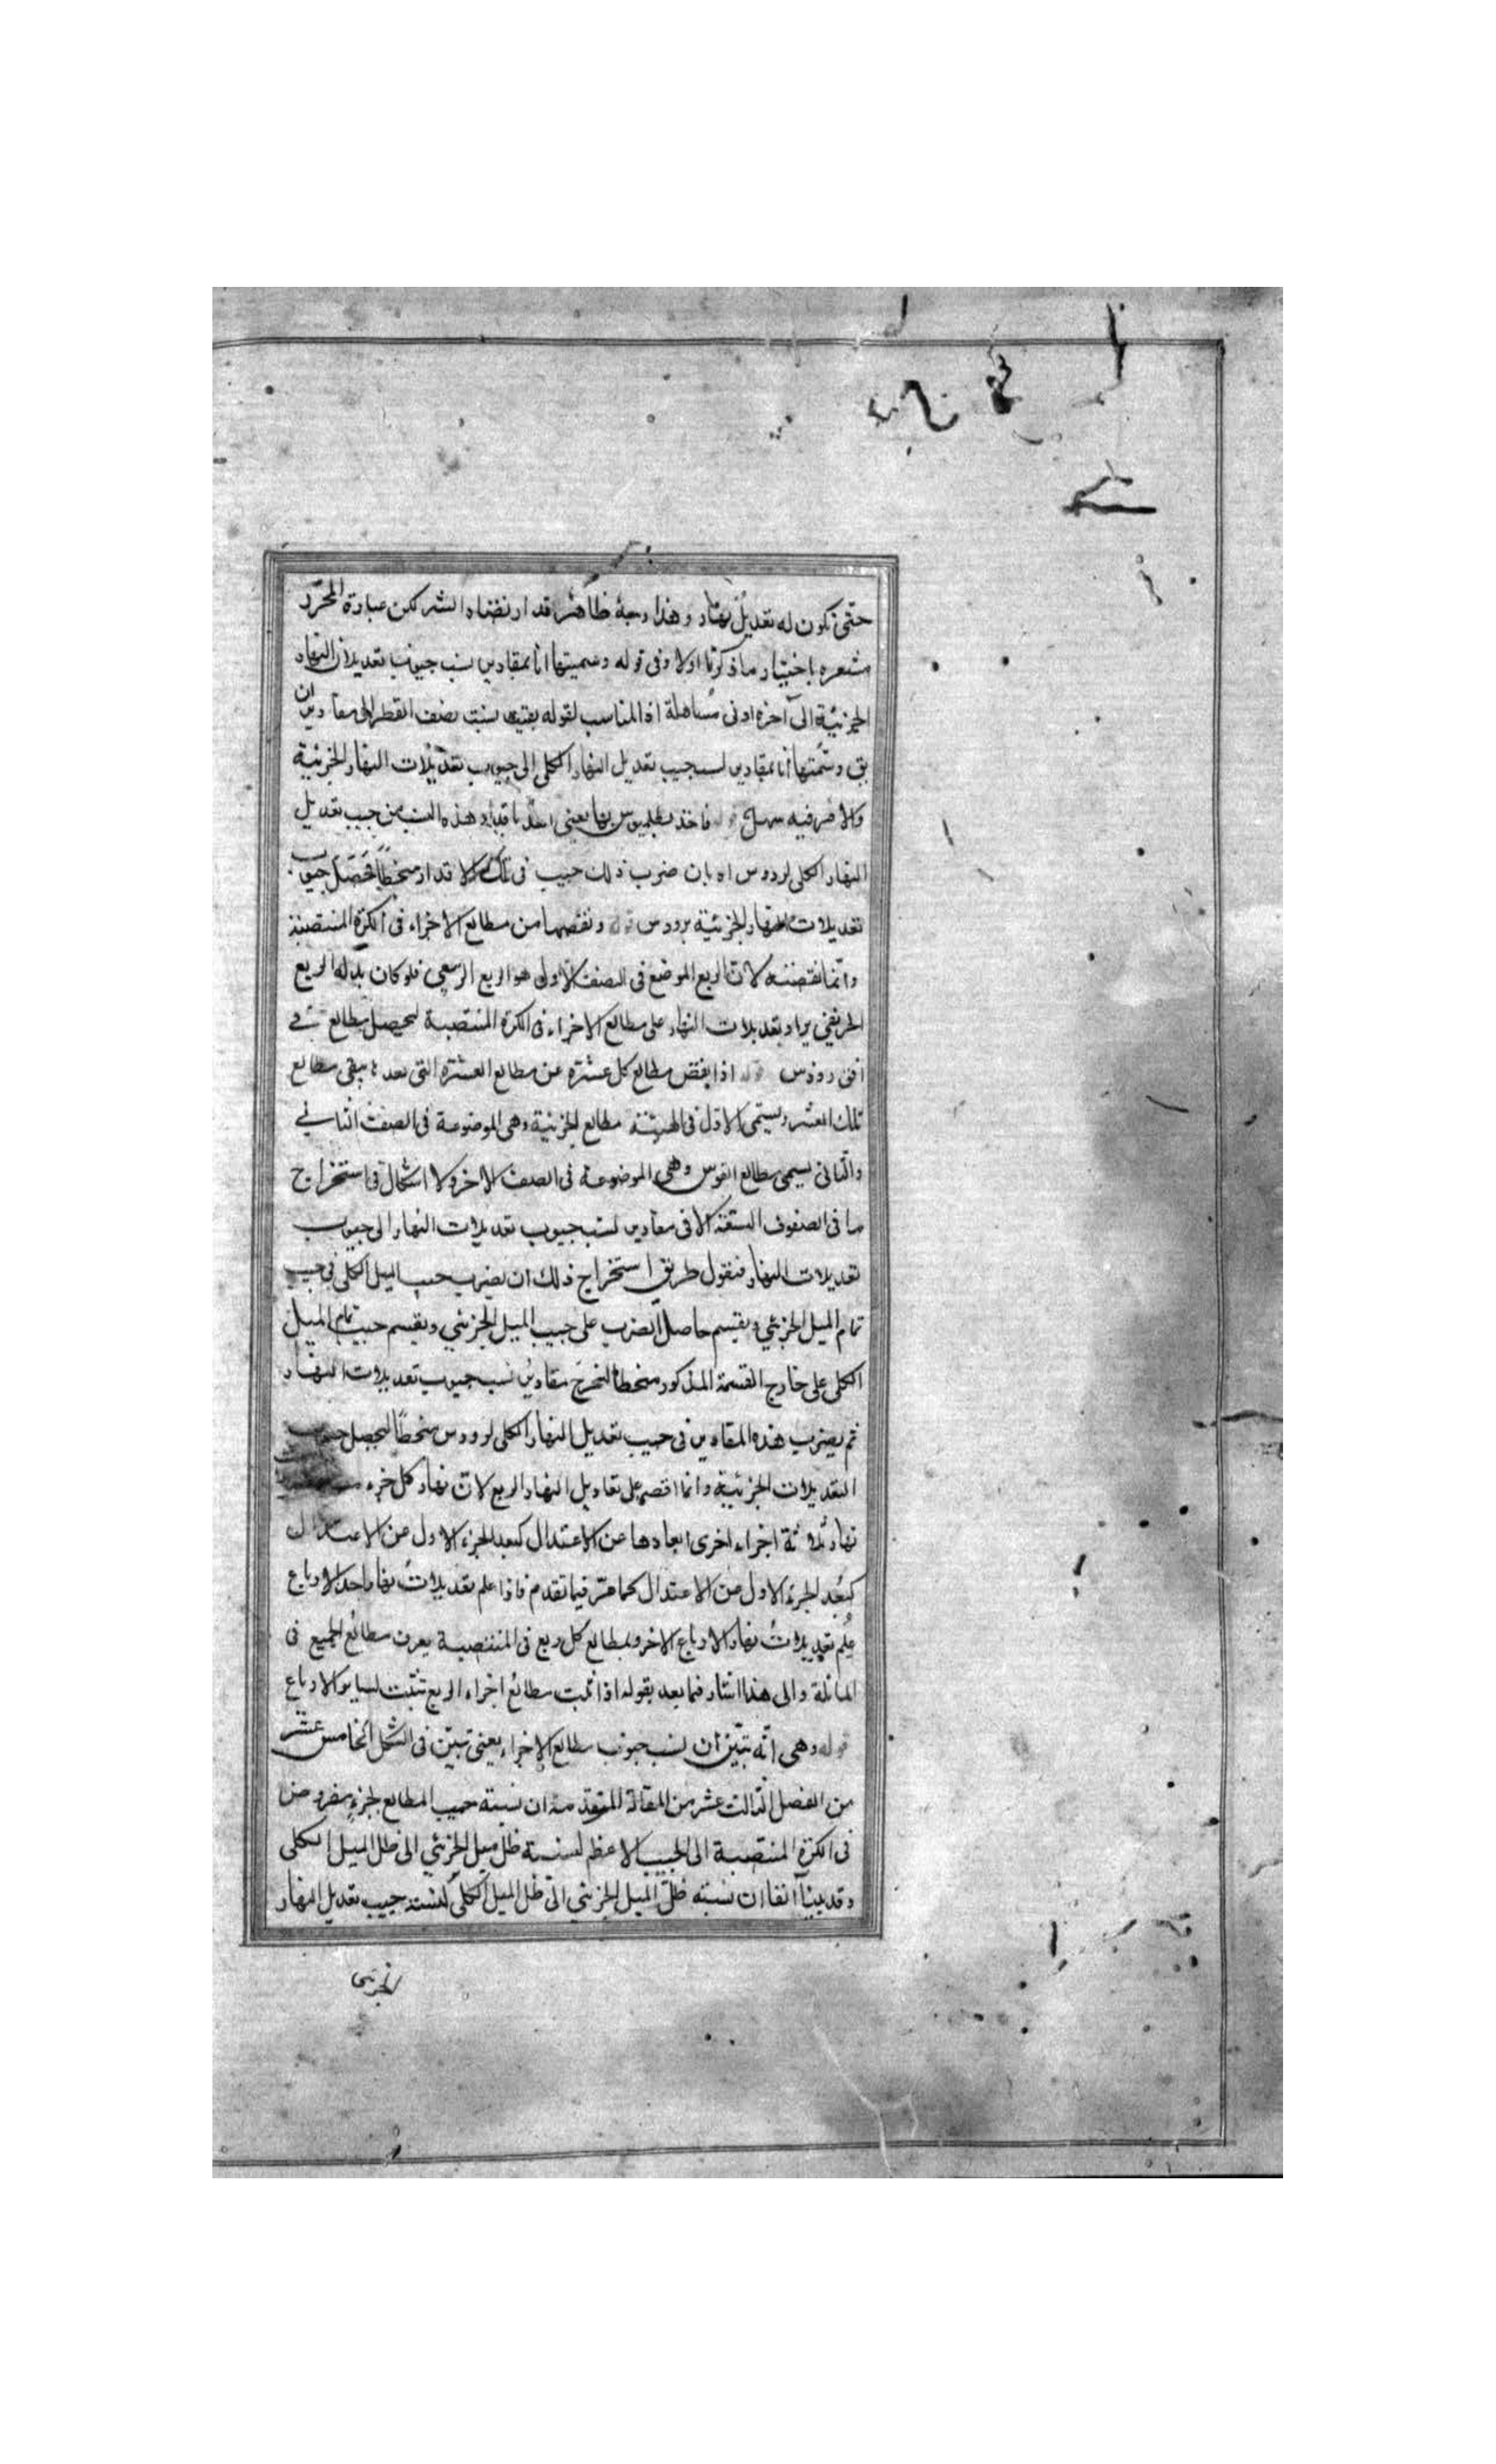 حتى يكون له تعديل نهار وهذا وجه ظاهر قد ارتضاه الشر لكن عبارة المحرر
مشعره باختيار ما ذكرنا اولا وفى قوله وسميتها انا بمقادير نسب جيوب تعديلات النهار
الجزئية الى آخره ادنى مساهلة اذ المناسب لقوله بقيت نسبة نصف القطر الى مقادير ان
يق وسميتها انا بمقادير نسب جيب تعديل النهار الكلى الى جيوب تعديلات النهار الجزئية
والامر فيه سهل قوله فاخذ بطلميوس بها يعنى اخذ باقدار هذه النسب من جيب تعديل
النهار الكلى لرودس اه بان ضرب ذلك جيب فى تلك الاقدار منحطا فحصل جيوب
تعديلات النهار الجزئية برودس قوله ونقصها من مطالع الاجزاء فى الكرة المنتصبة
وانما نقصته لان الربع الموضع فى النصف الاول هو الربع الربيعى فلو كان بدله الربع
الخريفى يزاد تعديلات النهار على مطالع الاجزاء فى الكرة المنتصبة ليحصل مطالع فى
افق رودس قوله اذا نقص مطالع كل عشرة من مطالع العشرة التى بعدها يبقى مطالع
تلك العشر ويسمى الاول فى الهيئة مطالع الجزئية وهى الموضوعة فى الصف الثانى
والثانى يسمى مطالع القوس وهى الموضوعة فى الصف الاخر ولا اشكال فى استخراج
ما فى الصفوف الستة الا فى مقادير نسب جيوب تعديلات النهار الى جيوب
تعديلات النهار فنقول طريق استخراج ذلك ان يضرب جيب الميل الكلى فى جيب
تمام الميل الجزئي ويقسم حاصل الضرب على جيب الميل الجزئي ويقسم جيب تمام الميل
الكلى على خارج القسمة المذكور منحطا لتخرج مقادير نسب جيوب تعديلات النهار
ثم يضرب هذه المقادير فى جيب تعديل النهار الكلى لرودس منحطا ليحصل جيوب
التعديلات الجزئية وانما اقتصر على تعاديل النهار الربع لان نهار كل جزء
نهار ثلاثة اجزاء اخرى ابعادها عن الاعتدال كبعد الجزء الاول من الاعتدال
كبعد الجزء الاول من الاعتدال كما مر فيما تقدم فاذا علم تعديلات نهار احد الارباع
علم تعديلات نهار الارباع الاخر وبمطالع كل ربع فى المنتصبة يعرف مطالع الجميع فى
المائلة والى هذا اشار فيما بعد بقوله اذا ثبت مطالع اجزاء الربع تثبت لساير الارباع
قوله وهى انه تبين ان نسب جيوب مطالع الاجزاء يعنى تبين فى الشكل الخامس عشر
من الفصل الثالث عشر من المقالة المتقدمة ان نسبة جيب المطالع لجزء مفروض
فى الكرة المنتصبة الى الجيب الاعظم لنسبة ظل ميل الجزئي الى ظل الميل الكلى
وقد بينا آنفا ان نسبة ظل الميل الجزئي الى ظل الميل الكلى كنسبة جيب تعديل النهار
الجزئى